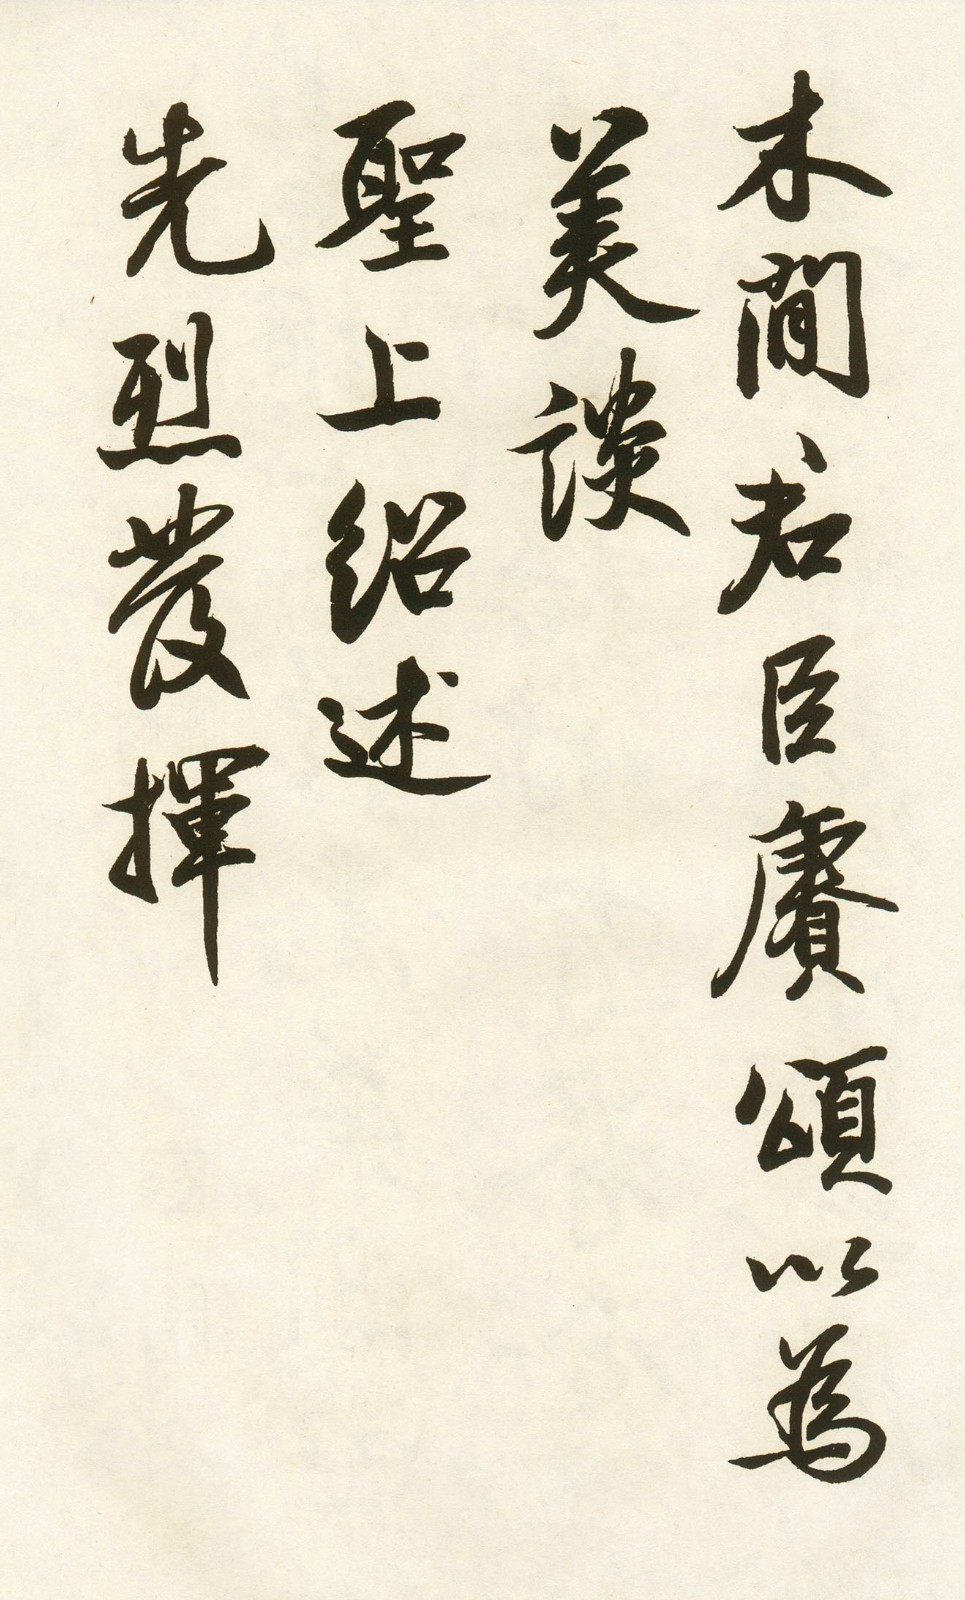 木間君臣賡頌以為
美談
聖上紹述
先烈發揮